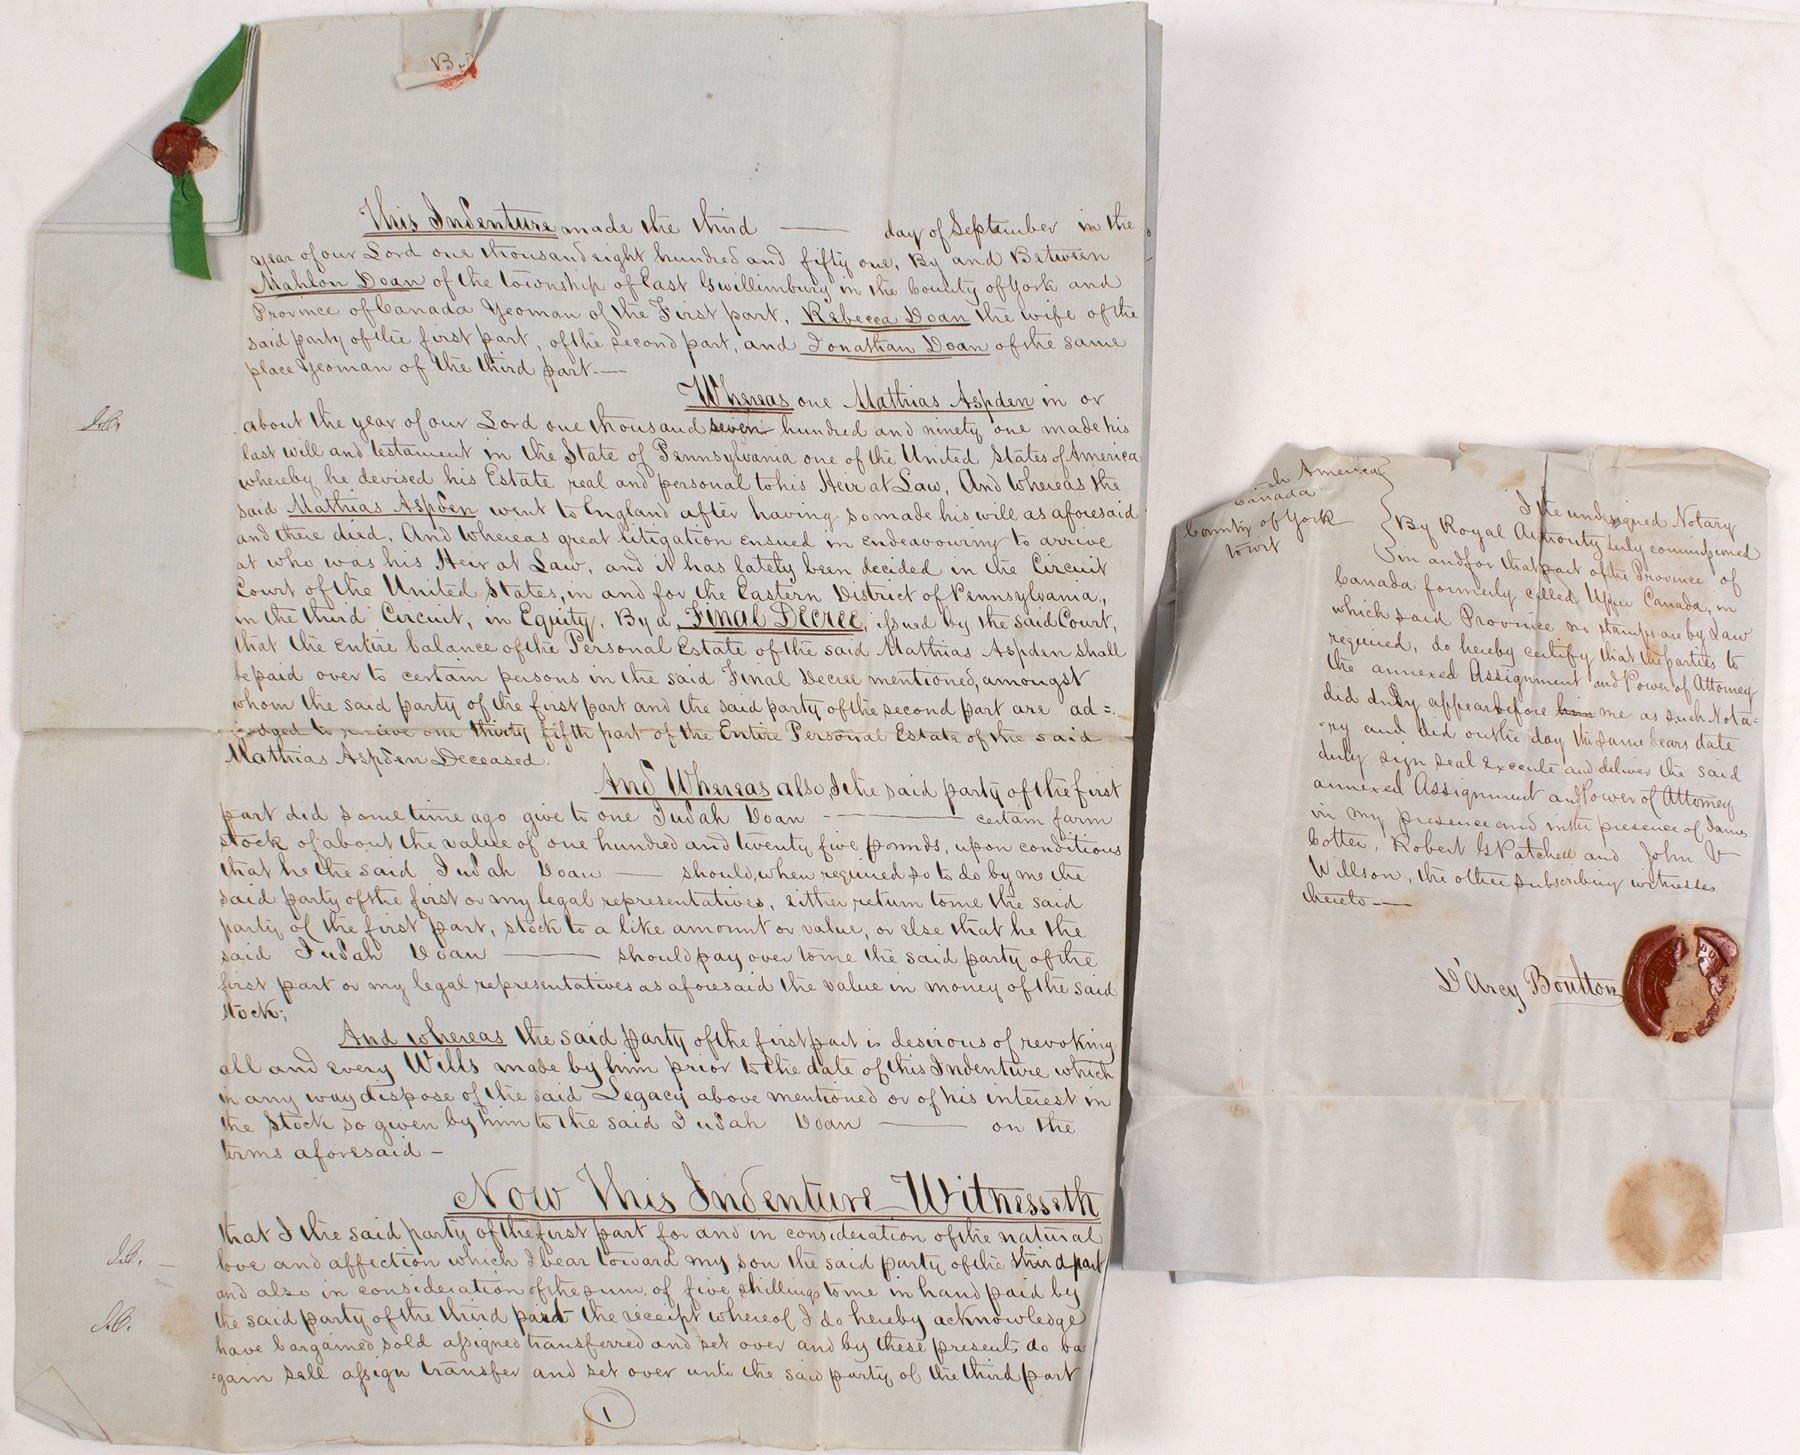 B
This Indenture made the third — day of September in the
year of our Lord one thousand eight hundred and fifty one, By and Between
Mahlon Doan of the township of East Gwillimbury in the County of York and
Province of Canada Yeoman of the First part, Rebecca Doan the wife of the
said party of the first part, of the second part, and Jonathan Doan of the same
place Yeoman of the third part.—
Whereas one Mathias Aspden in or
J.C.
about the year of our Lord one thousand seven hundred and ninety one made his
last will and testament in the State of Pennsylvania one of the United States of America
whereby he devised his Estate real and personal to his Heir at Law, And Whereas the
said Mathias Aspden went to England after having so made his will as aforesaid
and there died, And whereas great litigation ensued in endeavouring to arrive
at who was his Heir at Law, and it has lately been decided in the Circuit
Court of the United States, in and for the Eastern District of Pennsylvania,
in the third Circuit, in Equity, By a Final Decree, issued by the said Court,
that the entire balance of the Personal Estate of the said Mathias Aspden shall
be paid over to certain persons in the said Final Decree mentioned, amongst
whom the said party of the first part and the said party of the second part are ad=
judged to receive one thirty fifth part of the Entire Personal Estate of the said
Mathias Aspden Deceased.
And Whereas also, I the said party of the first
part did some time ago give to one Judah Doan — certain farm
stock of about the value of one hundred and twenty five pounds, upon conditions
that he the said Judah Doan — should, when required so to do by me the
said party of the first or my legal representatives, either return to me the said
party of the first part, stock to a like amount or value, or else that he the
said Judah Doan — should pay over to me the said party of the
first part or my legal representatives as aforesaid the value in money of the said
stock;
And whereas the said party of the first part is desirous of revoking
all and every Wills made by him prior to the date of this Indenture which
in any way dispose of the said Legacy above mentioned or of his interest in
the Stock so given by him to the said Judah Doan — on the
terms aforesaid —
Now This Indenture Witnesseth
that I the said party of the first part for and in consideration of the natural
J.C. —
love and affection which I bear toward my son the said party of the third part
and also in consideration of the sum of five shillings to me in hand paid by
J.C.
the said party of the third part the receipt whereof I do hereby acknowledge
have bargained sold assigned transferred and set over and by these presents do ba
=gain sell assign transfer and set over unto the said party of the third part
1
ish America
Canada
County of York
to wit
I the undersigned Notary
By Royal Authority duly commissioned
in and for that part of the Province of
Canada formerly called Upper Canada, in
which said Province no stamps are by Law
required, do hereby certify that the parties to
the annexed Assignment and Power of Attorney
did duly appear before him me as such Nota=
=ry and did on the day the same bears date
duly sign seal execute and deliver the said
annexed Assignment and Power of Attorney
in my presence and in the presence of James
Cotter, Robert G Patchell and John V
Willson, the other subscribing witnesses
thereto —
D'Arcy Boulton